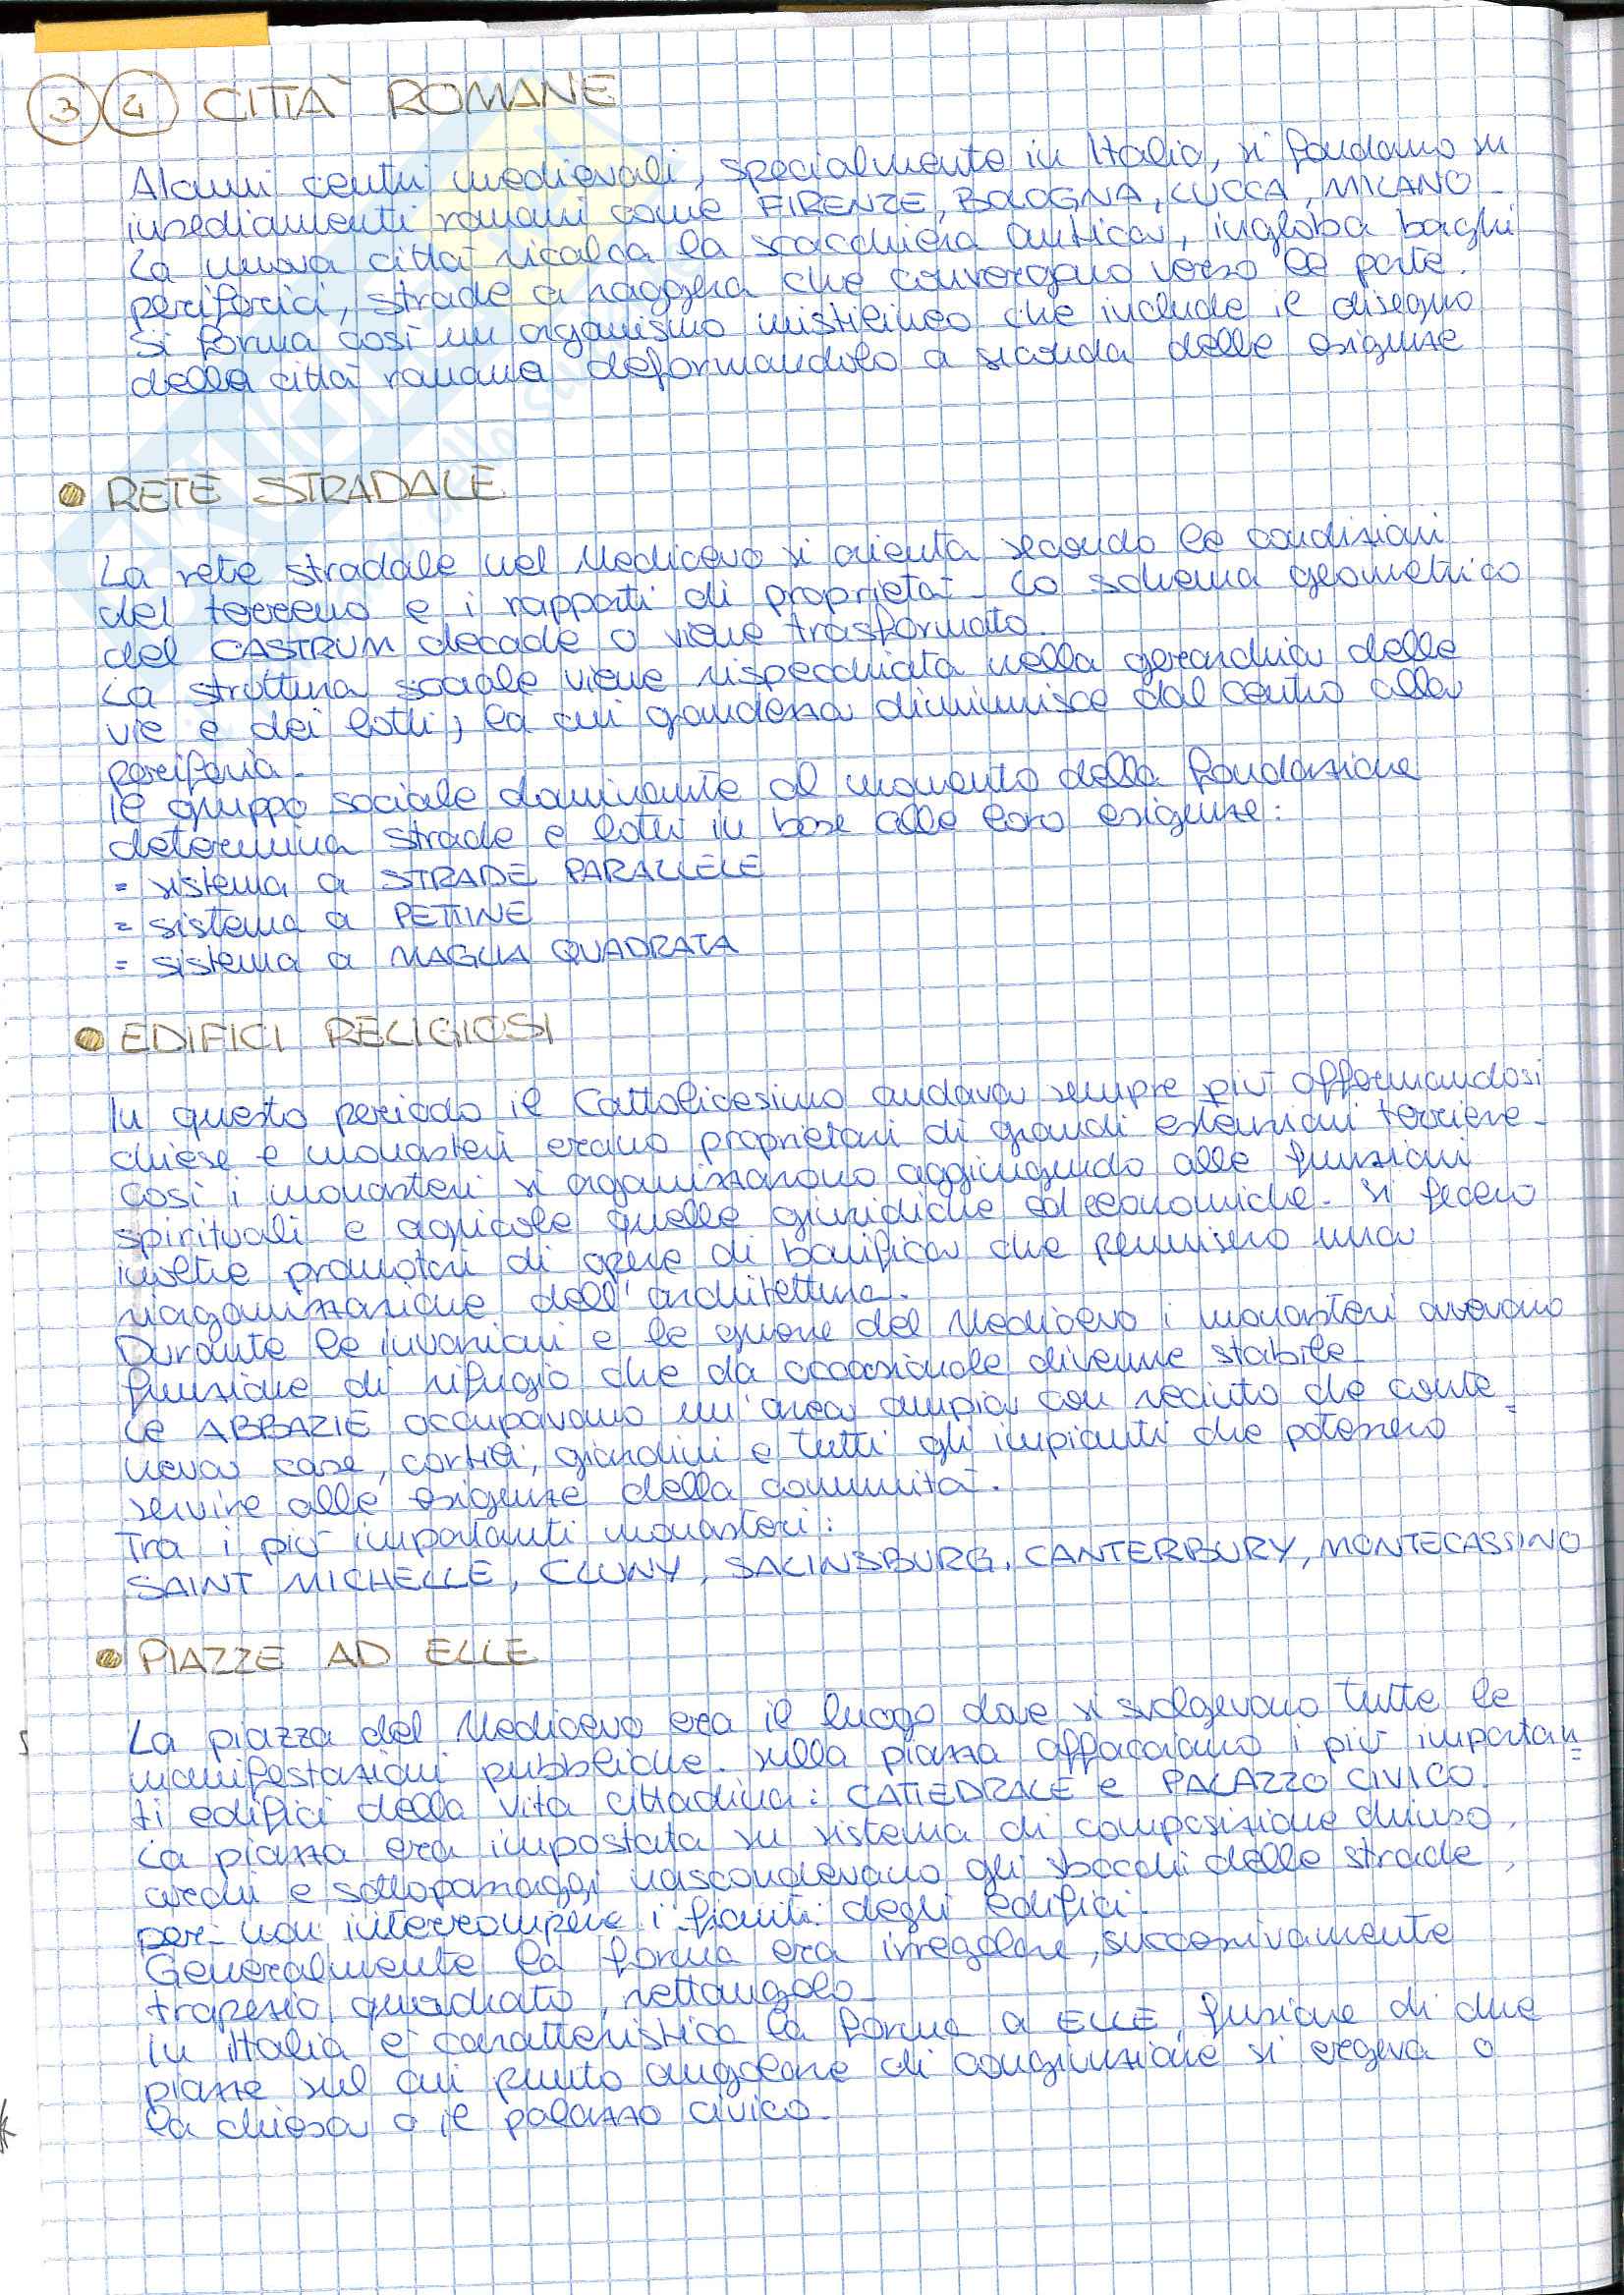 3 4 CITTÀ ROMANE
Alcuni centri medievali, specialmente in Italia, si fondano su
insediamenti romani come FIRENZE, BOLOGNA, LUCCA, MILANO.
La nuova città ricalca la scacchiera antica, ingloba borghi
periferici, strade a raggiera che convergono verso le porte.
Si forma così un organismo mistilineo che include il disegno
della città romana deformandolo a seconda delle esigenze
RETE STRADALE
La rete stradale nel Medioevo si orienta secondo le condizioni
del terreno e i rapporti di proprietà. Lo schema geometrico
del CASTRUM decade o viene trasformato.
La struttura sociale viene rispecchiata nella gerarchia delle
vie e dei lotti, la cui grandezza diminuisce dal centro alla
periferia.
Il gruppo sociale dominante al momento della fondazione
determina strade e lotti in base alle loro esigenze:
= sistema a STRADE PARALLELE
= sistema a PETTINE
= sistema a MAGLIA QUADRATA
EDIFICI RELIGIOSI
In questo periodo il Cattolicesimo andava sempre più affermandosi
chiese e monasteri erano proprietari di grandi estensioni terriere.
Così i monasteri si organizzarono aggiungendo alle funzioni
spirituali e agricole quelle giuridiche ed economiche. Si fecero
inoltre promotori di opere di bonifica che permisero una
riorganizzazione dell'architettura.
Durante le invasioni e le guerre del Medioevo i monasteri avevano
funzione di rifugio che da occasionale divenne stabile.
Le ABBAZIE occupavano un'area ampia con recinto che conte=
neva case, cortili, giardini e tutti gli impianti che potessero
servire alle esigenze della comunità.
Tra i più importanti monasteri:
SAINT MICHELLE, CLUNY, SALINSBURG, CANTERBURY, MONTECASSINO
PIAZZE AD ELLE
La piazza del Medioevo era il luogo dove si svolgevano tutte le
manifestazioni pubbliche. Sulla piazza affacciano i più importan=
ti edifici della vita cittadina: CATTEDRALE e PALAZZO CIVICO.
La piazza era impostata su sistema di composizione chiuso,
archi e sottopassaggi nascondevano gli sbocchi delle strade,
per non interrompere i fronti degli edifici.
Generalmente la forma era irregolare, successivamente
trapezio, quadrato, rettangolo.
In Italia è caratteristica la forma a ELLE, fusione di due
piazze sul cui punto angolare di congiunzione si ergeva o
la chiesa o il palazzo civico.